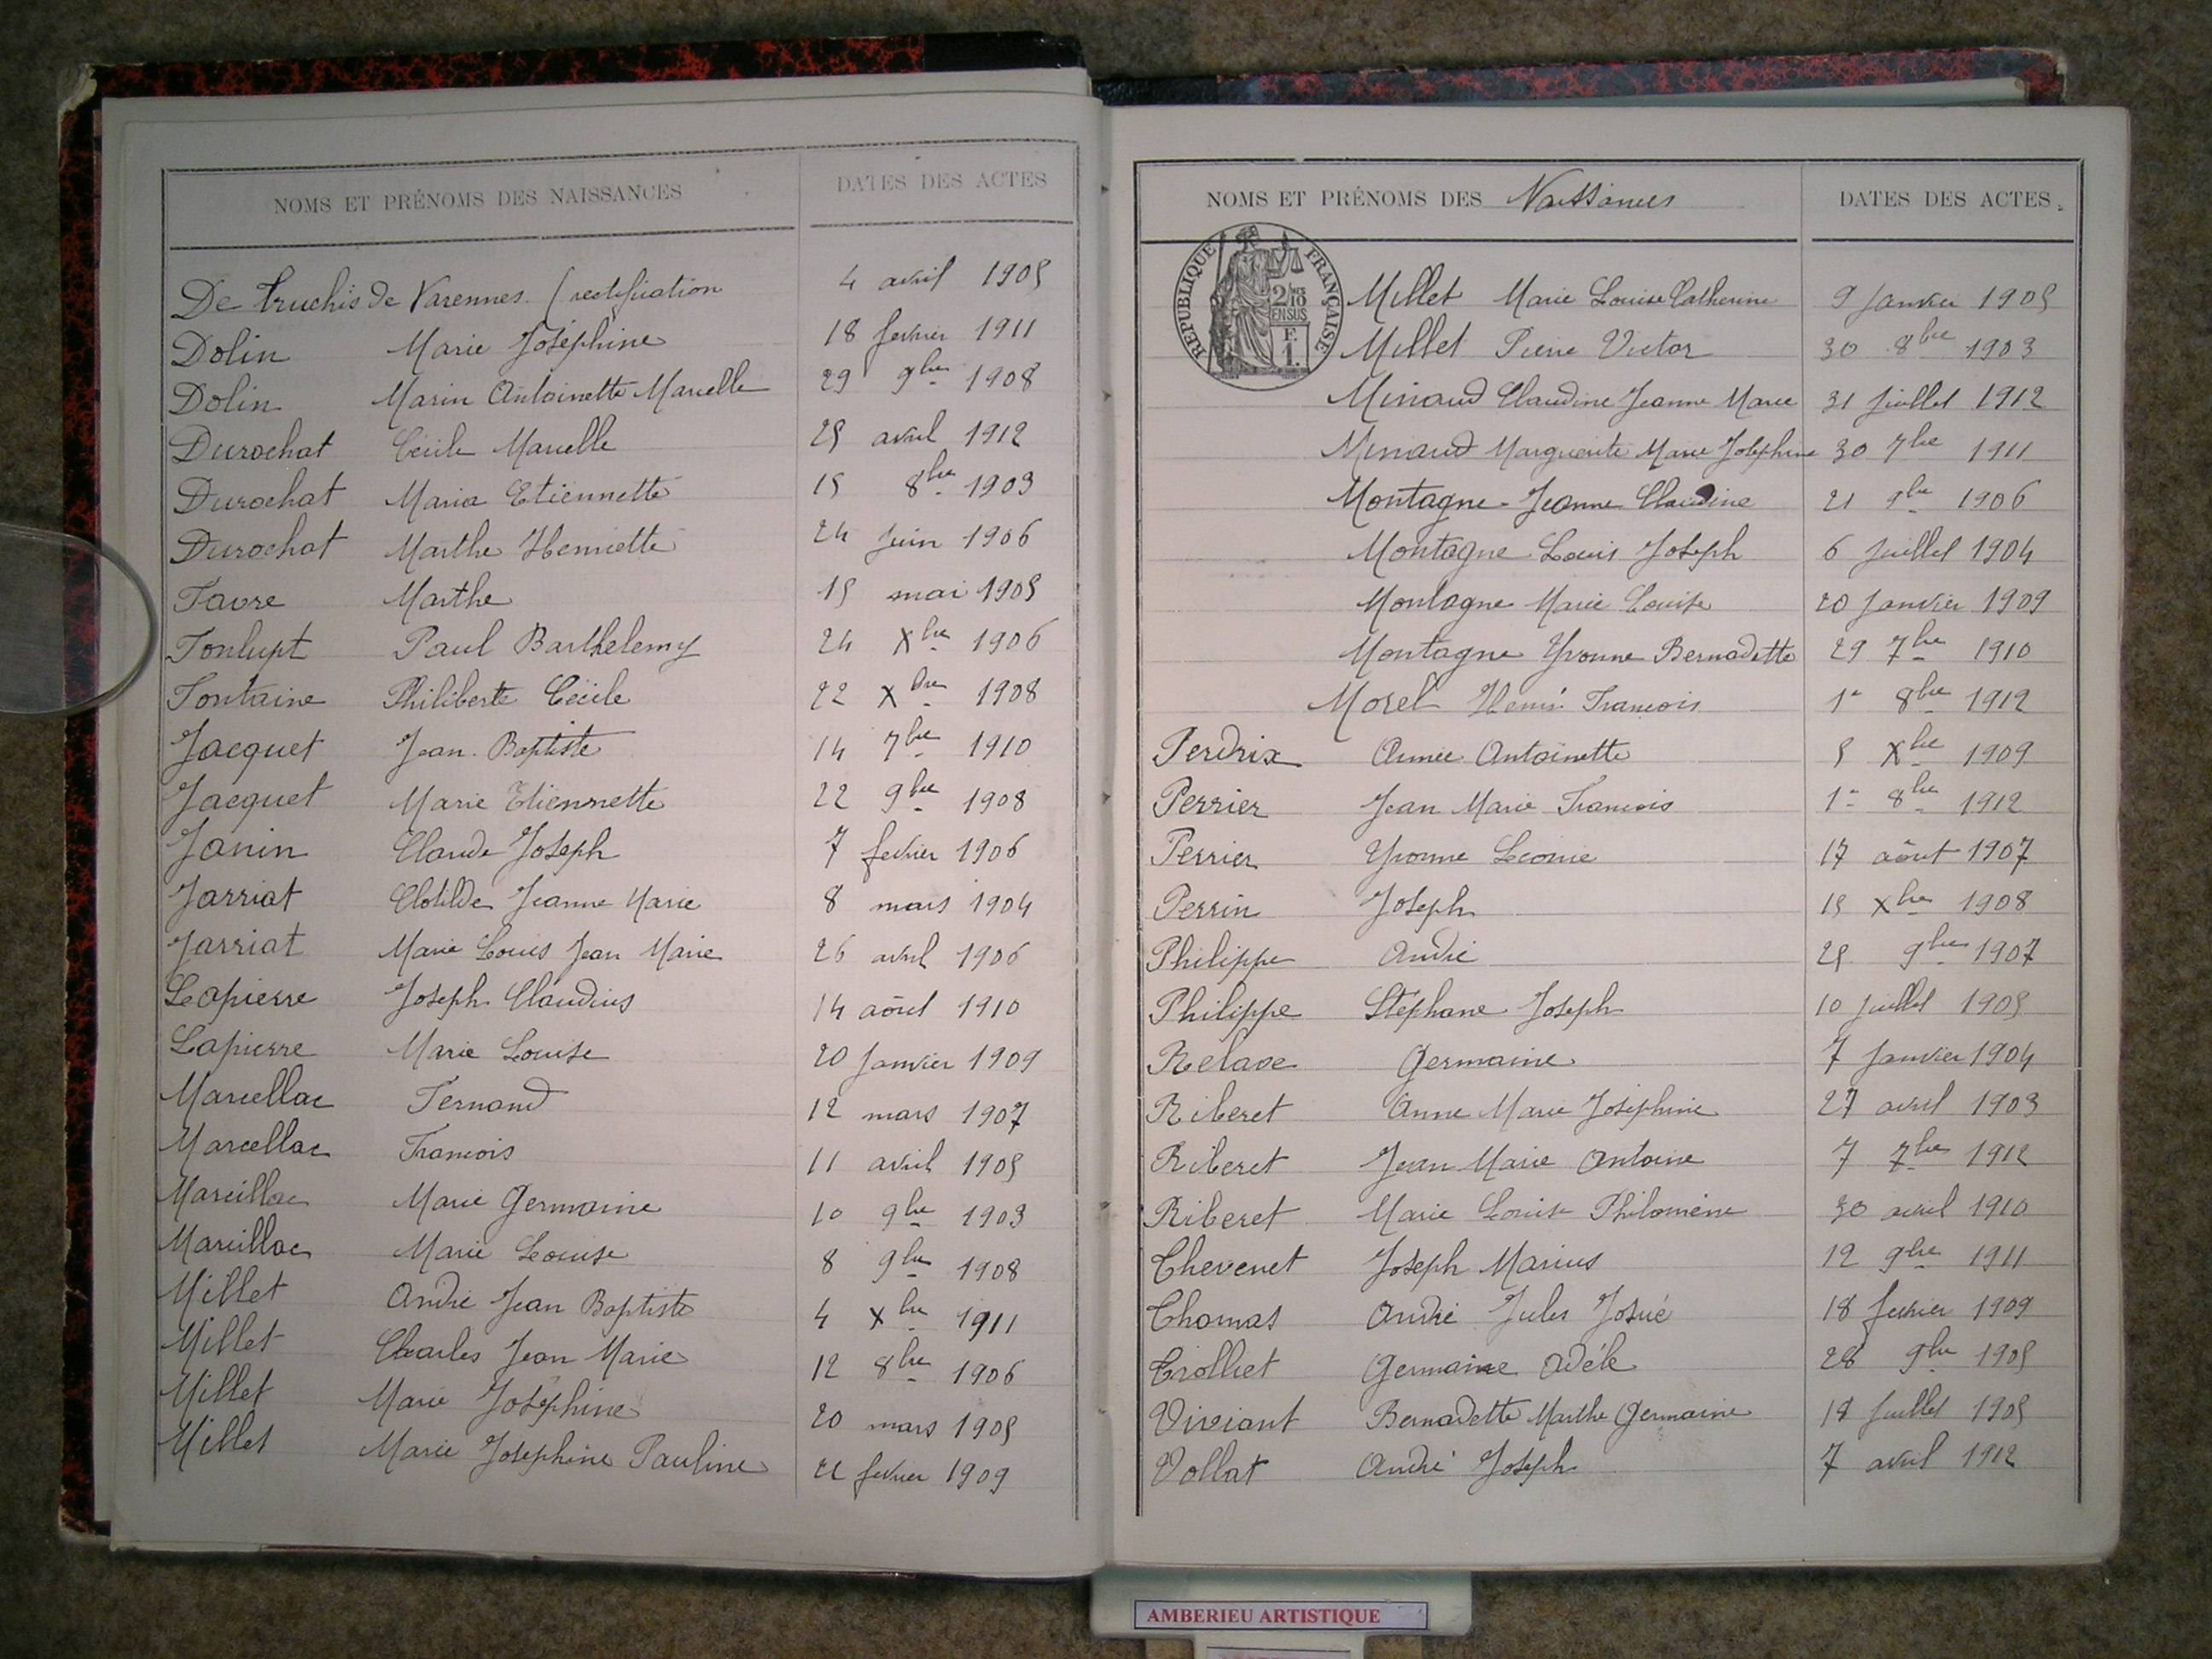 NOMS ET PRÉNOMS DES NAISSANCES DATES DES ACTES
De Truchis de Varennes (rectification 4 avril 1905
Dolin Marie Joséphine 18 fevrier 1911
Dolin Marin Antoinette Marcelle 29 9bre 1908
Durochat Cécile Marcelle 25 avril 1912
Durochat Maria Etiennette 15 8bre 1903
Durochat Marthe Henriette 24 juin 1906
Favre Marthe 15 mai 1905
Fonlupt Paul Barthelemy 24 Xbre 1906
Fontaine Philiberte Cécile 22 Xbre 1908
Jacquet Jean Baptiste 14 7bre 1910
Jacquet Marie Etiennette 22 9bre 1908
Janin Claude Joseph 7 fevrier 1906
Jarriat Clotilde Jeanne Marie 8 mars 1904
Jarriat Marie Louis Jean Marie 26 avril 1906
Lapierre Joseph Claudius 14 août 1910
Lapierre Marie Louise 20 Janvier 1909
Marcellac Fernand 12 mars 1907
Marcellac Francois 11 avril 1905
Marcillac Marie Germaine 10 9bre 1903
Marcillac Marie Louise 8 9bre 1908
Millet André Jean Baptiste 4 Xbre 1911
Millet Charles Jean Marie 12 8bre 1906
Millet Marie Joséphine 20 mars 1905
Millet Marie Joséphine Pauline fevrier 1909
NOMS ET PRÉNOMS DES Naissances DATES DES ACTES
RÉPUBLIQUE FRANÇAISE
2/10 EN SUS
F. 1.
Millet Marie Louise Catherine 9 Janvier 1905
Millet Pierre Victor 30 8bre 1903
Minaud Claudine Jeanne Marie 31 Juillet 1912
Minaud Marguerite Marie Joséphine 30 7bre 1911
Montagne Jeanne Claudine 21 9bre 1906
Montagne Louis Joseph 6 Juillet 1904
Montagne Marie Louise 20 Janvier 1909
Montagne Yvonne Bernadette 29 7bre 1910
Morel Henri Francois 1er 8bre 1912
Perdrix Aimée Antoinette 5 Xbre 1909
Perrier Jean Marie Francois 1er 8bre 1912
Perrier Yvonne Leonie 17 août 1907
Perrin Joseph 15 Xbre 1908
Philippe André 25 9bre 1907
Philippe Stéphane Joseph 10 Juillet 1905
Relave Germaine 7 Janvier 1904
Riberet Anne Marie Joséphine 27 avril 1903
Riberet Jean Marie Antoine 7 7bre 1912
Riberet Marie Louise Philomène 30 avril 1910
Thevenet Joseph Marius 12 9bre 1911
Thomas André Jules Josué 18 fevrier 1909
Trolliet Germaine Adèle 28 9bre 1905
Viviant Bernadette Marthe Germaine Juillet 1905
Vollat André Joseph 7 avril 1912
AMBERIEU ARTISTIQUE